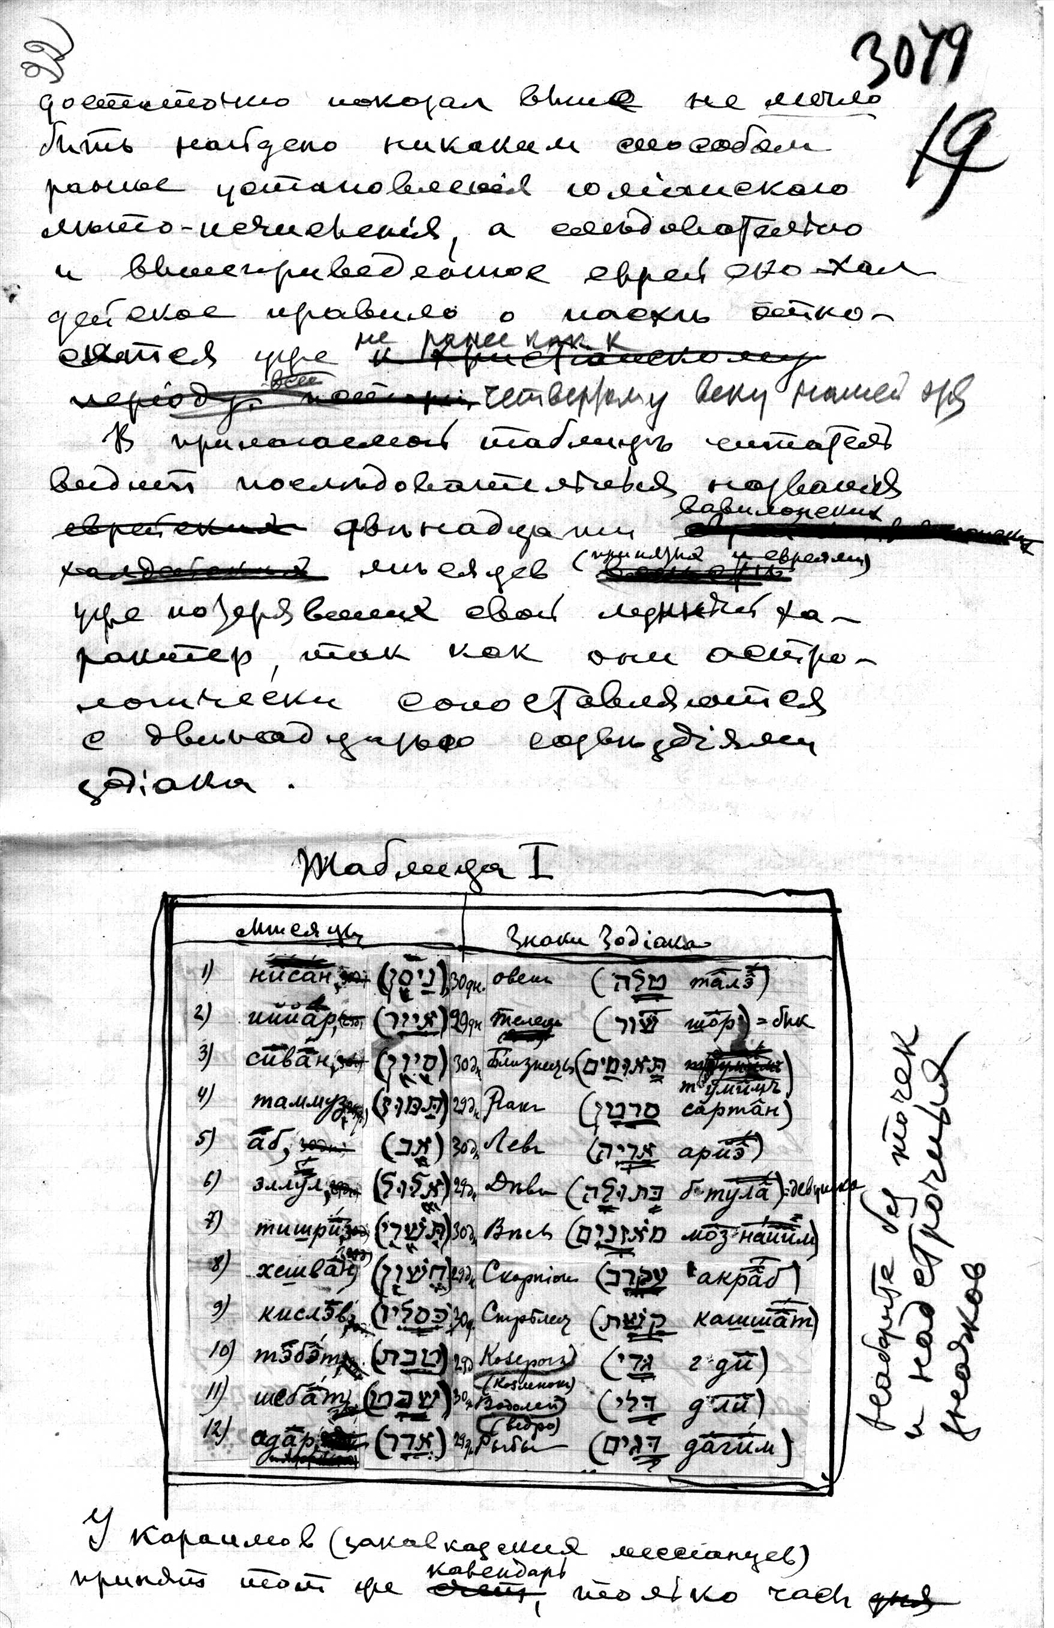 22
3079
19
достаточно показал выше не могло
быть найдено никаким способом
ранее установления юлианскаго
лѣто-исчисленія, а слѣдовательно
и вышеприведенное еврейско-хал
дейское правило о пасхѣ отно-
сится уже не ранее как к
четвертому веку нашей эры
В прилагаемой таблицѣ читатель
видит послѣдовательныя названія
двѣнадцати вавилонских
мѣсяцев (принятых и евреями)
уже потерявших свой лунный ха-
рактер, так как они астро-
логически сопоставляются
с двѣнадцатью созвѣздіями
зодіака.
Таблица I
Мѣсяцы Знаки Зодіака
1) нисāн (ניסן) 30 дн. Овен (טלה талэ)
2) иййāр (אייר) 29 дн Телец (שור шōр) = бык
3) сивāн (סיון) 30 д Близнецы (תאומים т'ӯмӣмъ)
4) таммуз (תמוז) 29 д. Рак (סרטן сартāн)
5) āб, (אב) 30 д Лев (אריה арйэ)
6) элӯл (אלול) 29 д. Дѣва (בתולה б'тӯлā) = девушка
7) тишрӣ (תשרי) 30 д Вѣсы (מאזנים мōз'найӣм)
8) хешвāн (חשון) 29 д Скорпіон (עקרב 'акрāб)
9) кислэв (כסליו) 30 д. Стрѣлец (קשת кашшāт)
10) тэбэт (טבת) 29 д Козерог (גדי г'дӣ)
(козленок)
11) шебāт (שבט) 30 д. Водолей (דלי д'лӣ)
(ведро)
12) адāр (אדר) 29 д. Рыбы (דגים дāгӣм)
Наберите без точек
и надстрочных
значков
У караимов (закавказских мессіанцев)
принят тот же календарь, только часы